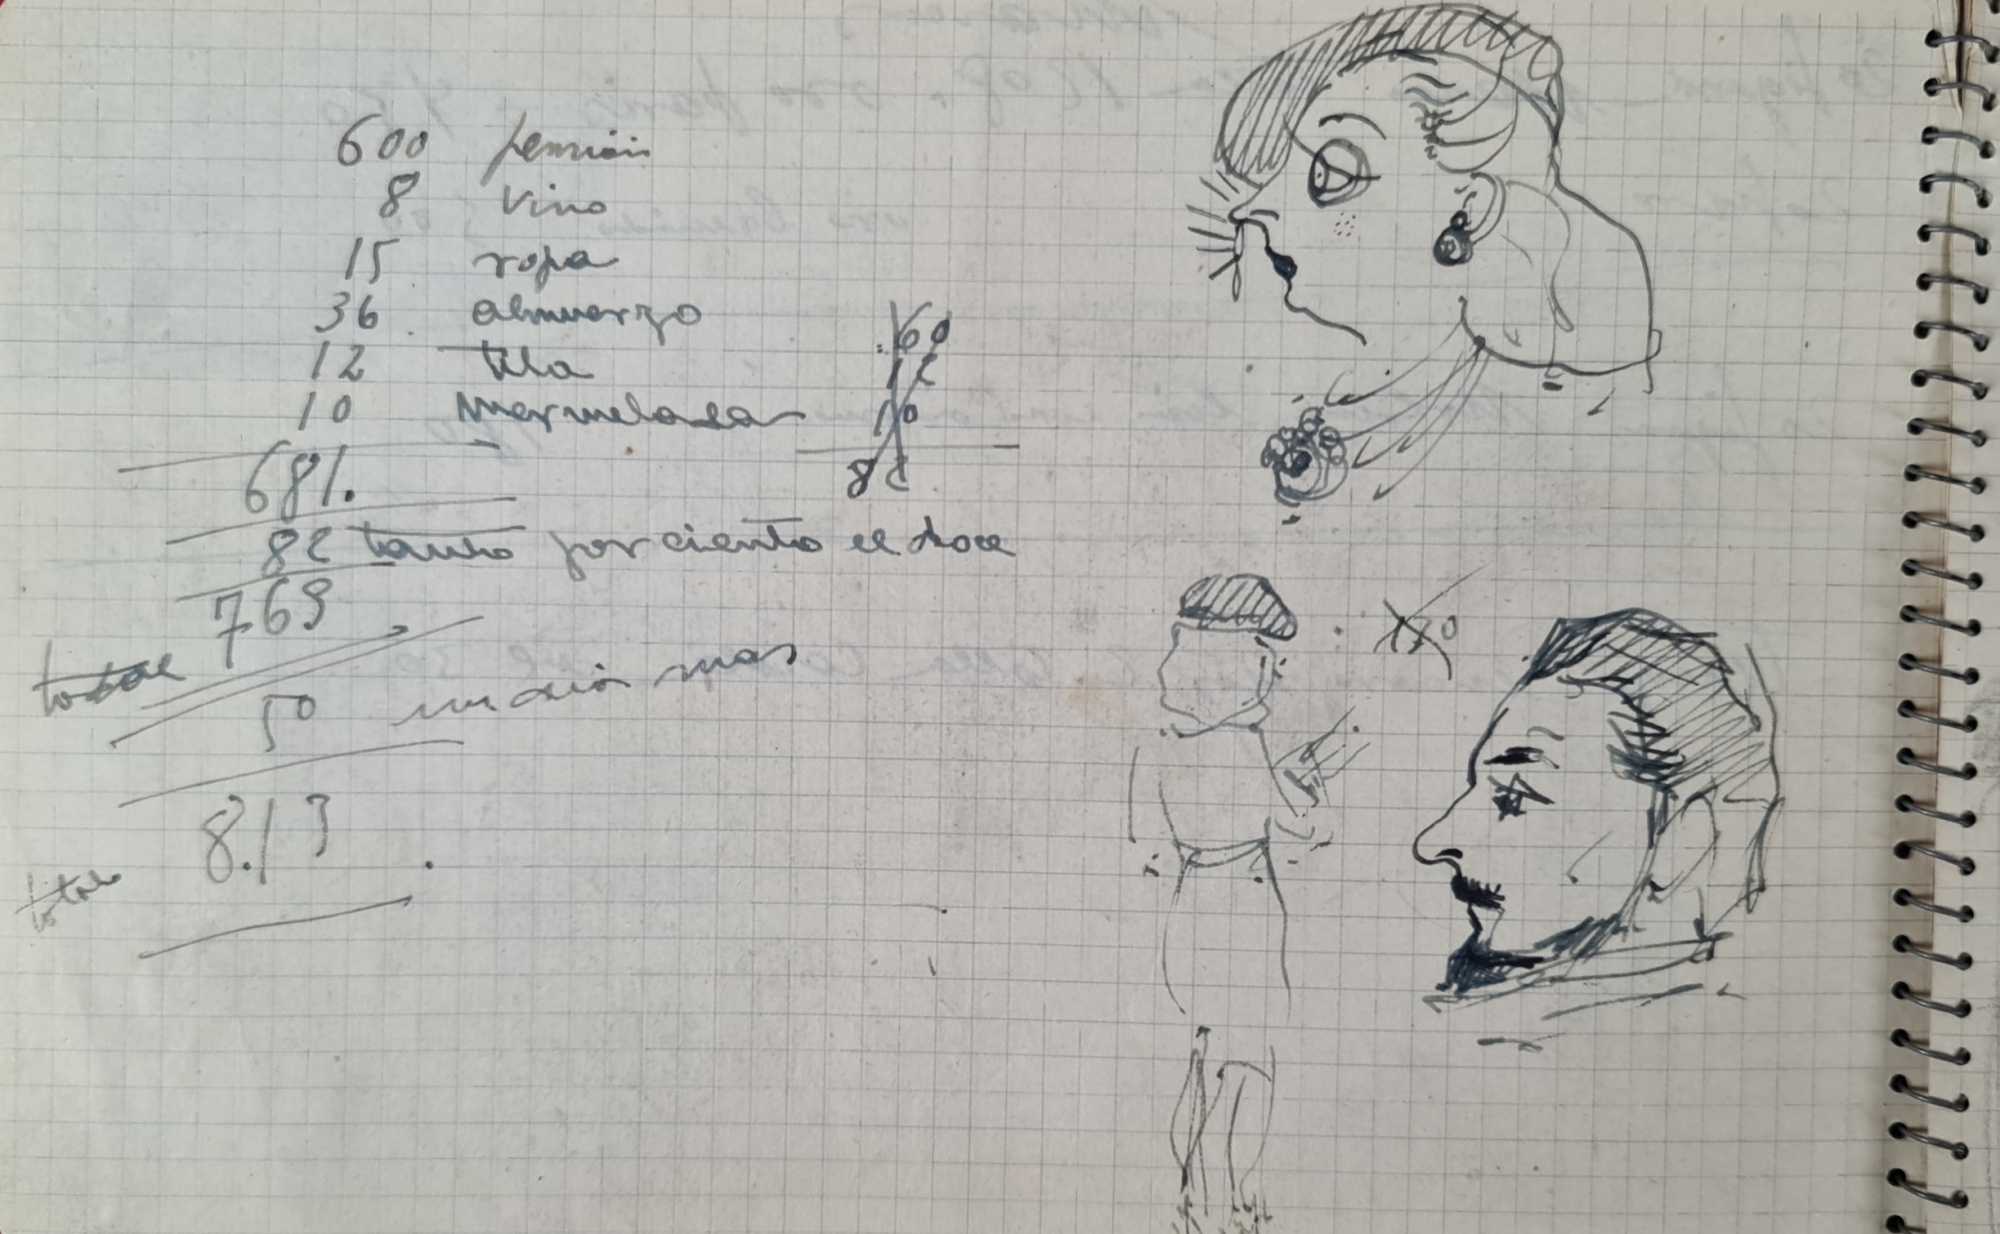 600 pensión
8 vino
15 ropa
36 almuerzo
12 tila
10 mermelada
60
12
10
82
681.
82 tanto por ciento el doce
763
total
50 mas
8.13
total